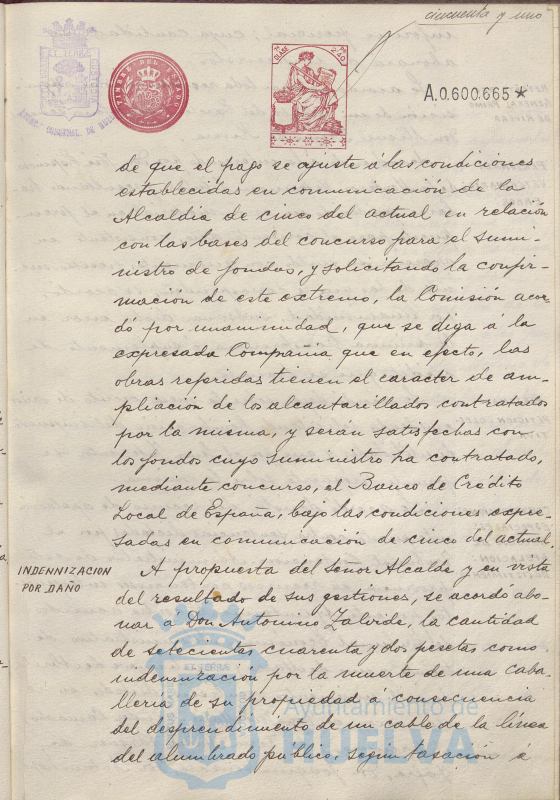 cincuenta y uno
TIMBRE DEL ESTADO
7ª CLASE
PTS 2'40
A.0.600.665*
de que el pago se ajuste á las condiciones
establecidas en comunicación de la
Alcaldia de cinco del actual en relación
con las bases del concurso para el sumi-
nistro de fondos, y solicitando la confir-
mación de este extremo, la Comisión acor-
dó por unanimidad, que se diga á la
expresada Compañia que en efecto, las
obras referidas tienen el caracter de am-
pliación de los alcantarillados contratados
por la misma, y serán satisfechas con
los fondos cuyo suministro ha contratado,
mediante concurso, el Banco de Crédito
Local de España, bajo las condiciones expre-
sadas en comunicación de cinco del actual.
INDENNIZACION
POR DAÑO
A propuesta del señor Alcalde y en vista
del resultado de sus gestiones, se acordó abo-
nar a Don Antonino Zalvide, la cantidad
de setecientas cuarenta y dos pesetas como
indemnización por la muerte de una caba-
lleria de su propiedad á consecuencia
del desprendimiento de un cable de la linea
del alumbrado publico, según tasación á
Ayuntamiento de
HUELVA